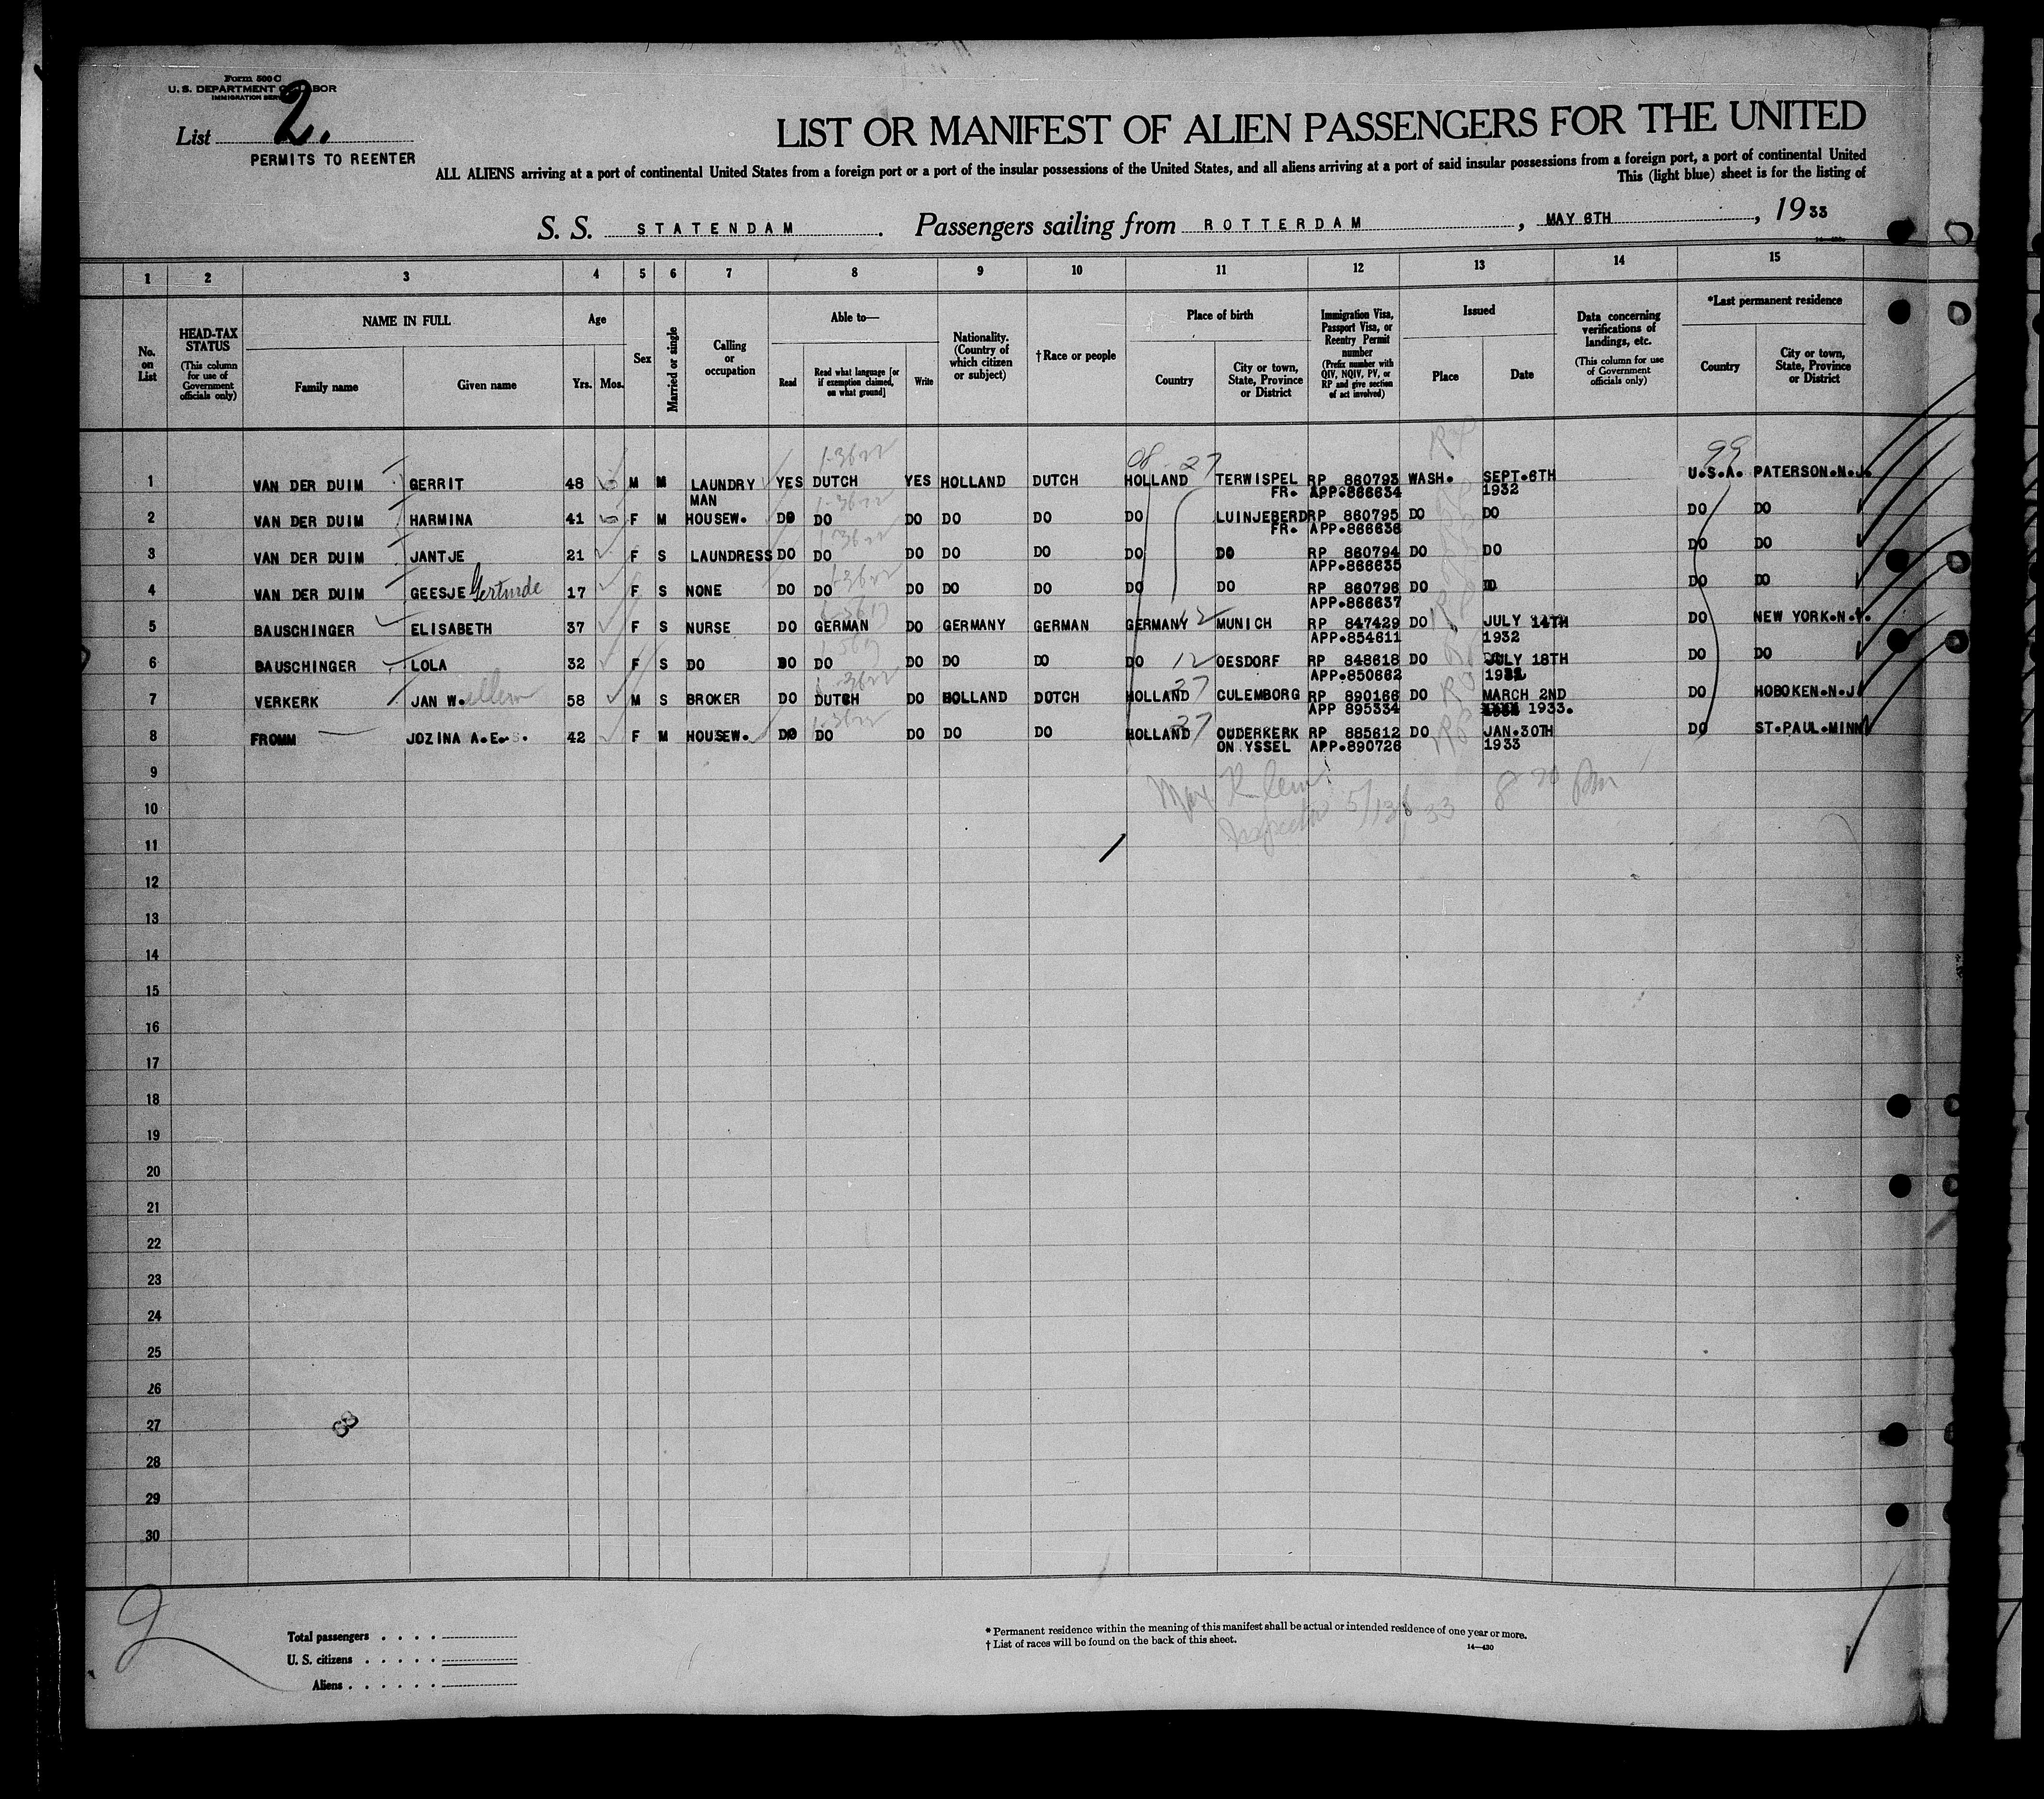 Form 500 C
U. S. DEPARTMENT OF LABOR
IMMIGRATION SERVICE
List 2.
PERMITS TO REENTER
LIST OR MANIFEST OF ALIEN PASSENGERS FOR THE UNITED
ALL ALIENS arriving at a port of continental United States from a foreign port or a port of the insular possessions of the United States, and all aliens arriving at a port of said insular possessions from a foreign port, a port of continental United
This (light blue) sheet is for the listing of
S. S. STATENDAM. Passengers sailing from ROTTERDAM, MAY 6TH, 1933
1 2 3 4 5 6 7 8 9 10 11 12 13 14 15
No. on List
HEAD-TAX STATUS (This column for use of Government officials only)
NAME IN FULL
Family name
Given name
Age
Yrs. Mos.
Sex
Married or single
Calling or occupation
Able to—
Read
Read what language [or if exemption claimed, on what ground]
Write
Nationality. (Country of which citizen or subject)
† Race or people
Place of birth
Country
City or town, State, Province or District
Immigration Visa, Passport Visa, or Reentry Permit number (Prefix number with QIV, NQIV, PV, or RP and give section of act involved)
Issued
Place
Date
Data concerning verifications of landings, etc. (This column for use of Government officials only)
*Last permanent residence
Country
City or town, State, Province or District
99
1 VAN DER DUIM GERRIT 48 M M LAUNDRY YES DUTCH YES HOLLAND DUTCH HOLLAND 27 TERWISPEL RP 860793 WASH. SEPT.6TH U.S.A. PATERSON.N.J.
MAN FR. APP.866634 1932
2 VAN DER DUIM HARMINA 41 F M HOUSEW. DO DO DO DO DO DO LUINJEBERD RP 860795 DO DO DO DO
FR. APP.866636
3 VAN DER DUIM JANTJE 21 F S LAUNDRESS DO DO DO DO DO DO DO RP 860794 DO DO DO DO
APP.866635
4 VAN DER DUIM GEESJE Gertrude 17 F S NONE DO DO DO DO DO DO DO RP 860796 DO DO DO
APP.866637
5 BAUSCHINGER ELISABETH 37 F S NURSE DO GERMAN DO GERMANY GERMAN GERMANY 12 MUNICH RP 847429 DO JULY 14TH DO NEW YORK.N.Y.
APP.854611 1932
6 BAUSCHINGER LOLA 32 F S DO DO DO DO DO DO DO 12 OESDORF RP 848618 DO JULY 18TH DO DO
APP.850662
7 VERKERK JAN W. 58 M S BROKER DO DUTCH DO HOLLAND DOTCH HOLLAND 27 CULEMBORG RP 890166 DO MARCH 2ND DO HOBOKEN.N.J
APP 895334 1933.
8 FROMM JOZINA A.E. 42 F M HOUSEW. DO DO DO DO DO HOLLAND 27 OUDERKERK RP 885612 DO JAN.30TH DO ST.PAUL.MINN
ON YSSEL APP.890726 1933
9
10
11
12
13
14
15
16
17
18
19
20
21
22
23
24
25
26
27
28
29
30
2
Total passengers
U. S. citizens
Aliens
* Permanent residence within the meaning of this manifest shall be actual or intended residence of one year or more.
† List of races will be found on the back of this sheet.
14—430